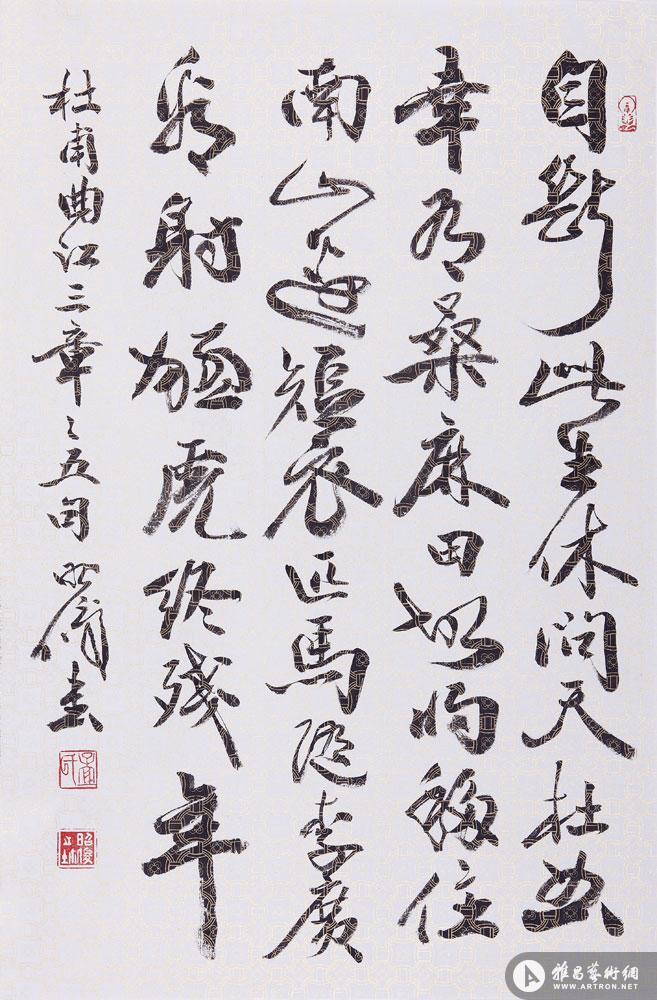 自斷此生休問天杜曲
幸有桑麻田故將移住
南山邊短衣匹馬隨李廣
看射猛虎終殘年
杜甫曲江三章之五句書
雅昌藝術網
WWW.ARTRON.NET